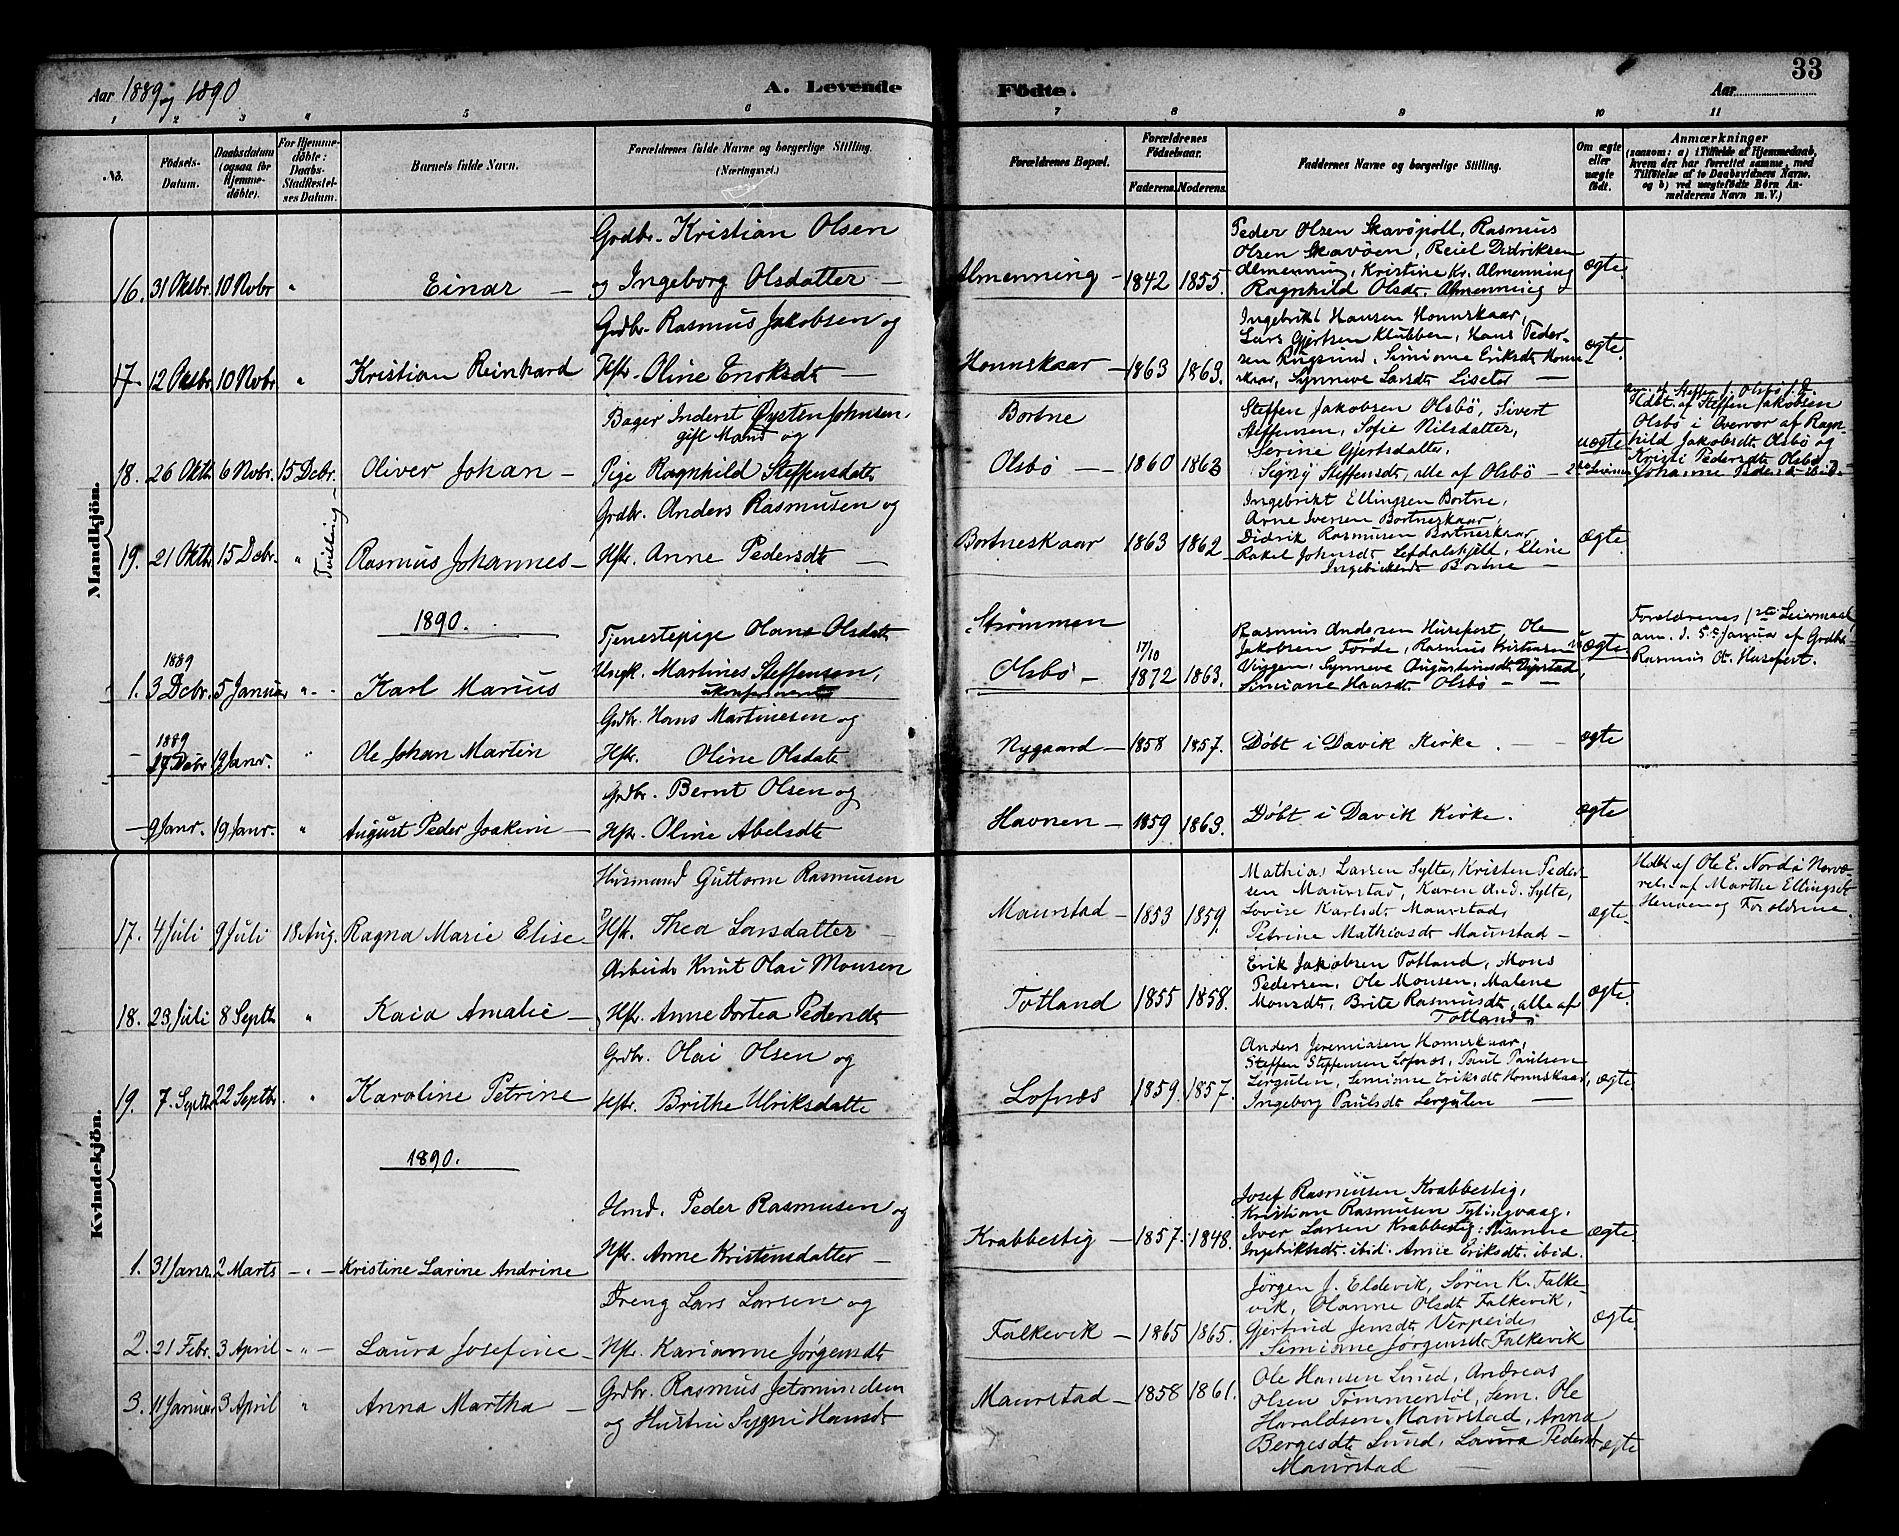 Aar 1889 og 1890
A. Levende
Fødte.
Aar
33
1 2 3 4 5 6 7 8 9 10 11
No.
Fødsels-
Datum.
Daabsdatum
(ogsaa for
Hjemme-
døbte).
For Hjemme-
døbte:
Daabs-
Stadfæstel-
ses Datum.
Barnets fulde Navn.
Forældrenes fulde Navne og borgerlige Stilling.
(Næringsvei.)
Forældrenes Bopæl.
Forældrenes
Fødselsaar.
Faderens. Moderens.
Faddernes Navne og borgerlige Stilling.
Om ægte
eller
uægte
født.
Anmærkninger
(saasom: a) i Tilfælde af Hjemmedaab,
hvem der har forrettet samme, med
Tilføielse af to Daabsvidners Navne,
og b) ved uægtefødte Børn An-
melderens Navn m. V.)
Mandkjøn.
16. 31 Oktbr. 10 Novbr " Einar —
Grdbr. Kristian Olsen
og Ingeborg Olsdatter —
Almenning — 1842 1855.
Peder Olsen Skavøpoll, Rasmus
Olsen Skavøen, Reiel Didriksen
Almenning, Kristine Kr. Almenning
Ragnhild Olsdt. Almenning
ægte.
17. 12 Oktbr. 10 Novbr " Kristian Reinhard
Grdbr. Rasmus Jakobsen og
Hstr. Oline Enoksdtr —
Honnskaar — 1863 1863.
Ingebrikt Hansen Honnskaar,
Lars Gjertsen Klubben, Hans Peder-
sen Rugsund, Simione Eriksdt Honn-
skaar, Synneve Larsdt Liseter —
ægte.
18. 26 Oktbr 6 Novbr. 15 Dcbr. Oliver Johan —
Bager Inderst Øysten Johnsen,
gift Mand og
Pige Ragnhild Steffensdatr
Bortne
Olsbø — 1860 1863
Steffen Jakobsen Olsbø, Sivert
Steffensen, Sofie Nilsdatter,
Serine Gjertsdatter,
Signy Steffensdt, alle af Olsbø —
uægte
Hdbt. af Steffen Jakobsen
Olsbø i Overvær af Ragn-
hild Jakobsdt Olsbø og
Kristi Pedersdt Olsbø
Johanne Pedersdt ibid.
19. 21 Oktbr 15 Dcbr. " Tvilling Rasmus Johannes —
Grdbr. Anders Rasmusen og
Hstr. Anne Pedersdtr —
Bortneskaar 1863 1862
Ingebrikt Ellingsen Bortne,
Arne Iversen Bortneskaar,
Didrik Rasmusen Bortneskaar,
Rakel Johnsdt Lefdalskjeld, Eline
Ingebriktsdt Bortne —
ægte.
1890.
1889
1. 3 Dcbr. 5 Januar " Karl Marius
Tjenestepige Olane Olsdatr
Ungk. Martines Steffensen,
ukonfirmeret
Strømmen
Olsbø — 17/10 1872 1863.
Rasmus Andersen Husefest, Ole
Jakobsen Førde, Rasmus Kristiansen
Viggen, Synneve Augustinusdt
Simione Hansdt Olsbø —
uægte
Foreldrenes 1ste Leiermaal,
anm. d. 5te Januar af Grdbr.
Rasmus Ot. Husefest.
1889
— 17 Dcbr 19 Janr. " Ole Johan Martin
Grdbr. Hans Martinesen og
Hstr. Oline Olsdatr
Nygaard — 1858 1857.
Døbt i Davik Kirke. —
ægte
— 9 Janr. 19 Janr. " August Peder Joakim —
Grdbr. Bernt Olsen og
Hstr. Oline Abelsdtr
Havnen — 1859 1863.
Døbt i Davik Kirke.
ægte
Kvindekjøn.
17. 4 Juli 9 Juli 18 Aug. Ragna Marie Elise —
Husmand Guttorm Rasmusen
& Hstr. Thea Larsdatter —
Maurstad — 1853 1859.
Mathias Larsen Sylte, Kristen Peder-
sen Maurstad, Karen And. Sylte,
Lovise Karlsdt Maurstad,
Petrine Mathiasdt Maurstad —
ægte.
Hdbt. af Ole E. Nord i Nærvæ-
relse af Marthe Ellingsdt
Henden og Foreldrene.
18. 23 Juli 8 Septbr " Kaia Amalie —
Arbeider Knut Olai Monsen
Hstr. Anne Dortea Pedersdt
Totland 1855 1858.
Erik Jakobsen Totland, Mons
Pedersen, Ole Monsen, Malene
Monsdt, Brite Rasmusdt, alle af
Totland.
ægte.
19. 7. Septbr 22 Septbr. " Karoline Petrine
Grdbr. Olai Olsen og
Hstr. Brithe Ulriksdatter
Lofnæs 1859. 1857.
Anders Jeremiasen Honnskaar,
Steffen Steffensen Lofnæs, Paul Paulsen
Lergulen, Simione Eriksdt Honnskaar,
Ingeborg Paulsdt Lergulen —
ægte
1890.
1. 31 Janr. 2 Marts — " — Kristine Larine Andrine
Hmd. Peder Rasmusen og
Hstr. Anne Kristensdatter —
Krabbestig — 1857. 1848.
Josef Rasmusen Krabbestig,
Kristian Rasmusen Tytingvaag,
Iver Larsen Krabbestig, Susanne
Ingebriktsdt ibid. Anne Eriksdt ibid.
ægte.
2. 21 Febr. 3 April — " — Laura Josefine —
Dreng Lars Larsen og
Hstr. Karianne Jørgensdt
Falkevik — 1865 1865.
Jørgen J. Eldevik, Søren K. Falke-
vik, Olanne Olsdt Falkevik,
Gjertrud Jensdt Verpeide,
Simione Jørgensdt Falkevik
ægte.
3. 11 Januar 3 April " Anna Martha —
Grdbr. Rasmus Jetmundsen
og Hustru Sygni Hansdt
Maurstad — 1858 1861.
Ole Hansen Lund, Andreas
Olsen Tømmerstøl, Sem. Ole
Haraldsen Maurstad, Anna
Bergesdt Lund, Laura Pedersdt
Maurstad —
ægte